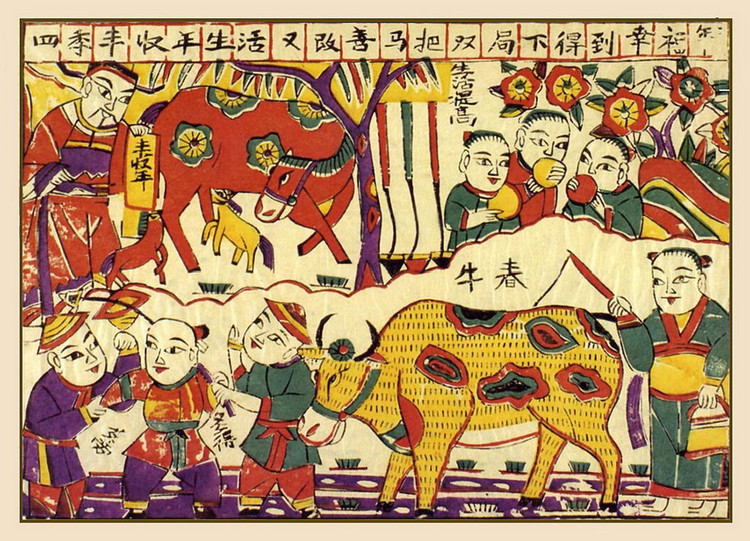 四季丰收年生活又改善马把双局下得到幸福年
生活提高
丰收年
春牛
多福